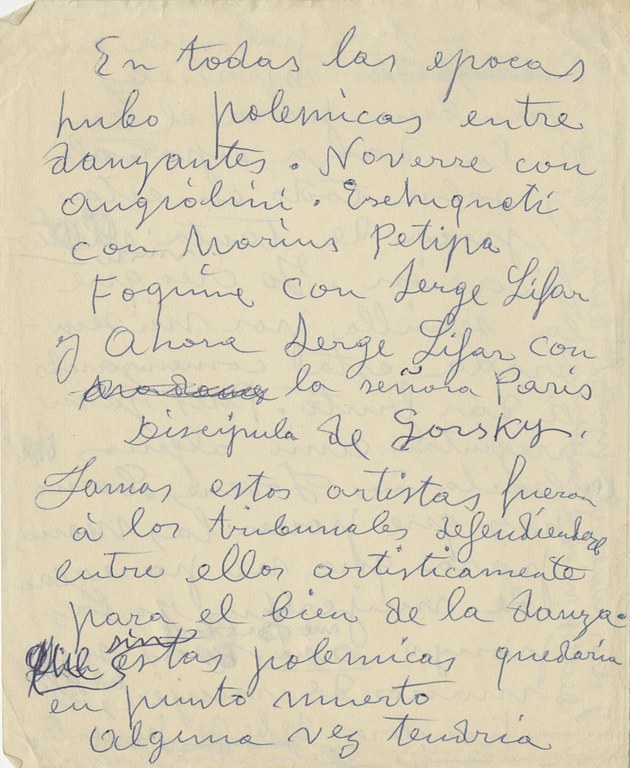 En todas las epocas
hubo polemicas entre
danzantes. Noverre con
angiolini. Eschiqueti
con Marius Petipa
Foquine con Serge Lifar
y Ahora Serge Lifar con
la señora Paris
Discipula de Gorsky.
Jamas estos artistas fueron
à los tribunales defendiendose
entre ellos artisticamente
para el bien de la danza.
sin estas polemicas quedaria
en punto muerto
alguna vez tendria